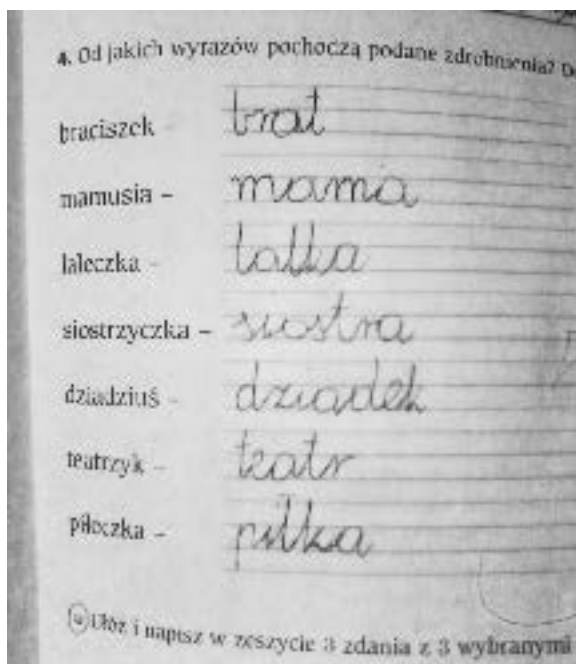 4. Od jakich wyrazów pochodzą podane zdrobnienia?
braciszek – brat
mamusia – mama
laleczka – lalka
siostrzyczka – siostra
dziadziuś – dziadek
teatrzyk – teatr
piłeczka – piłka
Ułóż i napisz w zeszycie 3 zdania z 3 wybranymi